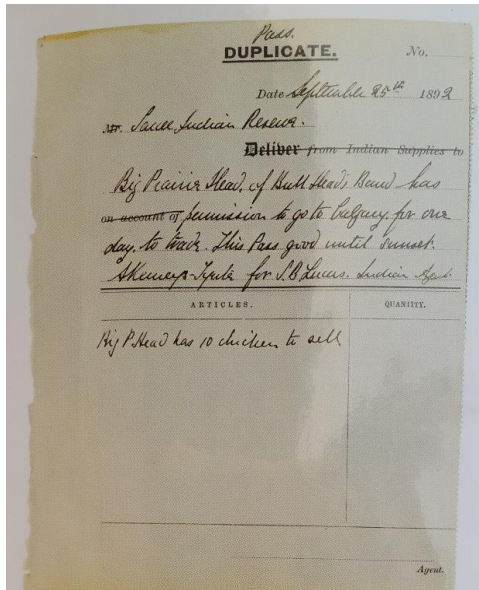 Pass.
DUPLICATE. No.
Date September 25th 1892
Mr. Sarcee Indian Reserve.
Deliver from Indian Supplies to
Big Prairie Head, of Bull Head's Band has
on account of permission to go to Calgary for one
day, to trade. This Pass good until sunset.
for S.B Lucas. Indian Agent
ARTICLES. QUANTITY.
Big P. Head has 10 chicken to sell
Agent.